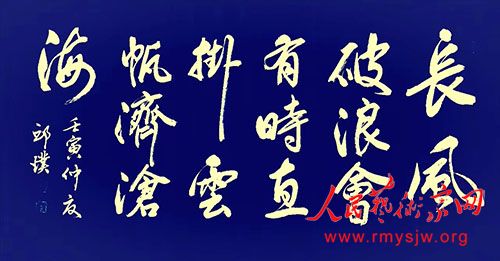 長風
破浪會
有時直
掛雲
帆濟滄
海
壬寅仲夏
邱璞
人民藝術家网
www.rmysjw.org